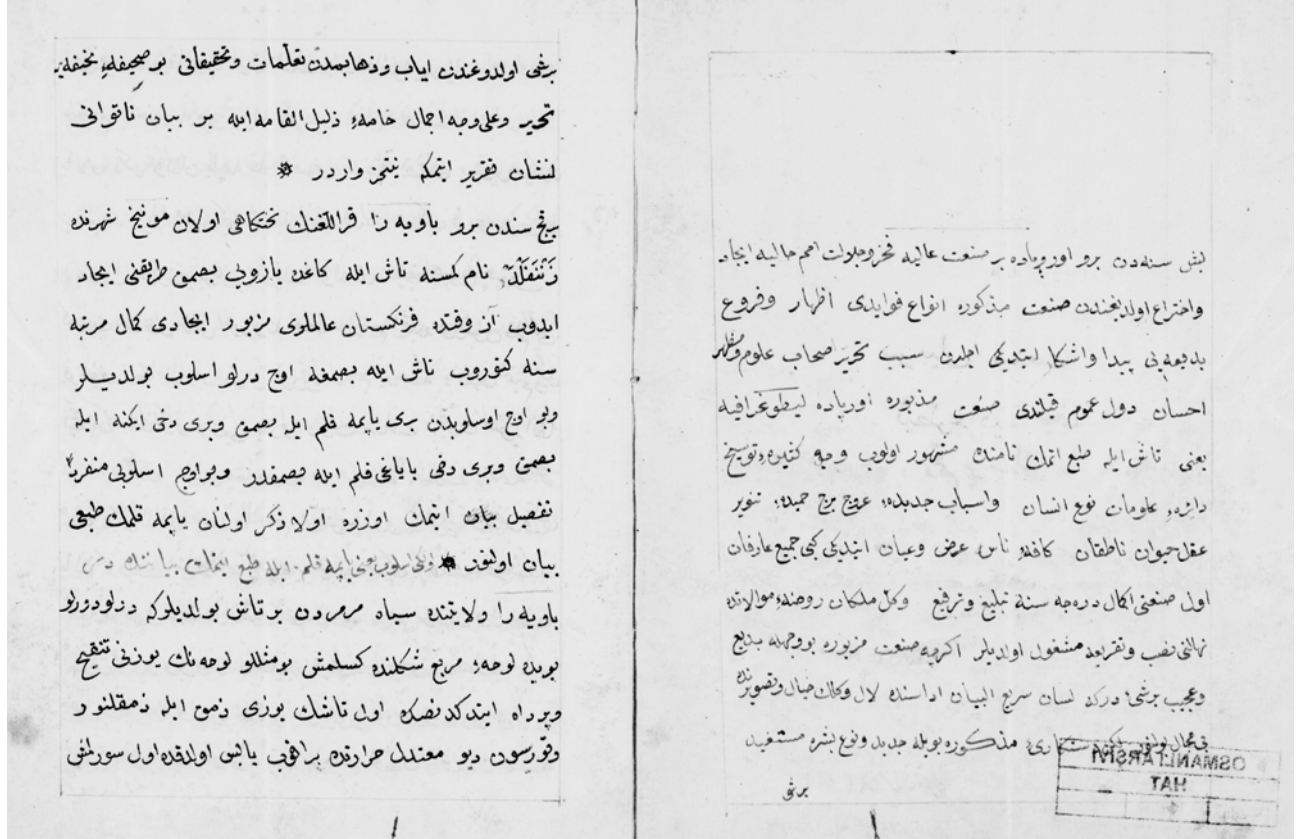 بش سنه‌دن برو اوروپاده بر صنعت عاليه فخر وجلالت امم حاليه ايجاد
واختراع اولديغندن صنعت مذكوره انواع فوايدى اظهار وفروع
بديعه‌يى پيدا واشكار ايتديكى اجلدن سبب تحرير اصحاب علوم
احسان دول عموم قيلندى صنعت مذبوره اورپاده ليطوغرافيه
يعنى تاش ايله طبع اتمك نامنده مشهور اولوب وجه كتيره توسيع
دائرهء علومات نوع انسان واسباب جديده عروج برج حميده تنوير
عقل حيوان ناطقان كافهء ناس عرض وعيان ايتديكى كبى جميع عارفان
اول صنعتى اكمال درجه سنه تبليغ وترفيع وكل ملكان روضهء موالاتده
نهالنى نصب وتقريعه مشغول اولديلر اكرچه صنعت مزبوره بو وجهله بديع
وعجيب برشى در كه لسان سريع البيان اداسنده لال وكلك خيال وتصويرنده
بى مجال مذكوره بويله جديد ونوع بشره مستفيد
برشى
OSMANLI ARŞİVİ
HAT
برشى اولدوغندن اياب وذهابمدن تعلمات وتحقيقاتى بر صحيفهء نحيفه‌يه
تحرير وعلى وجه اجمال خامهء ذليل القامه ايله بر بيان ناتوانى
لسان تقرير ايتمكه نيتمز واردر *
برقچ سنه‌دن برو باويه‌را قراللغنك تختكاهى اولان مونيخ شهرنده
نام كمسنه تاش ايله كاغد يازويى بصمق طريقنى ايجاد
ايدوب آز وقتده فرنكستان عالملرى مزبور ايجادى كمال مرتبه
سنه كتوروب تاش ايله بصمغه اوچ درلو اسلوب بولديلر
وبو اوچ اوسلوبدن برى ياپمه قلم ايله بصمق وبرى دخى ايكنه ايله
بصمق وبرى دخى باياغى قلم ايله بصمقدر وبو اوچ اسلوبى منفردا
تفصيل بيان ايتمك اوزره اولا ذكر اولنان ياپمه قلمك طبعى
بيان اولنور * اولكى اسلوب يعنى ياپمه قلم ايله طبع ايتمك بياننده در
باويه‌را ولايتنده سياه مرمردن بر تاش بولديلر كه درلو درلو
بويده لوحهء مربع شكلنده كسلمش بو مثللو لوحه‌نك يوزنى تنقيح
وپرداه ايتدكدنصكره اول تاشك يوزى زمق ايله زمقلنور
وقوريسون ديو معتدل حرارتده براقوب يابس اولدقده اول سورلمش